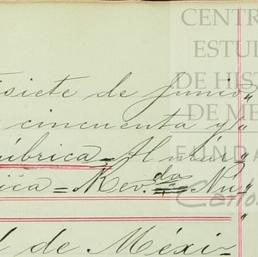 CENTR
ESTU
DE HIS
DE MÉ
FUND
siete de Junio "
cincuenta y "
úbrica = Al már "
ica = Rev.do = Nú "
l de Méxi-